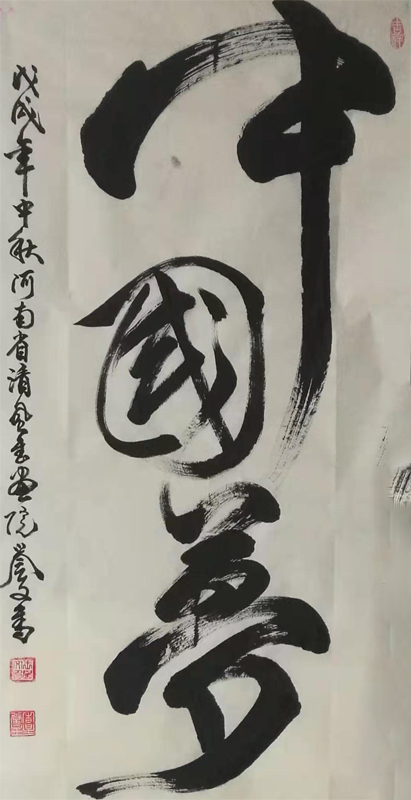 中國夢
戊戌年中秋河南省清風書畫院